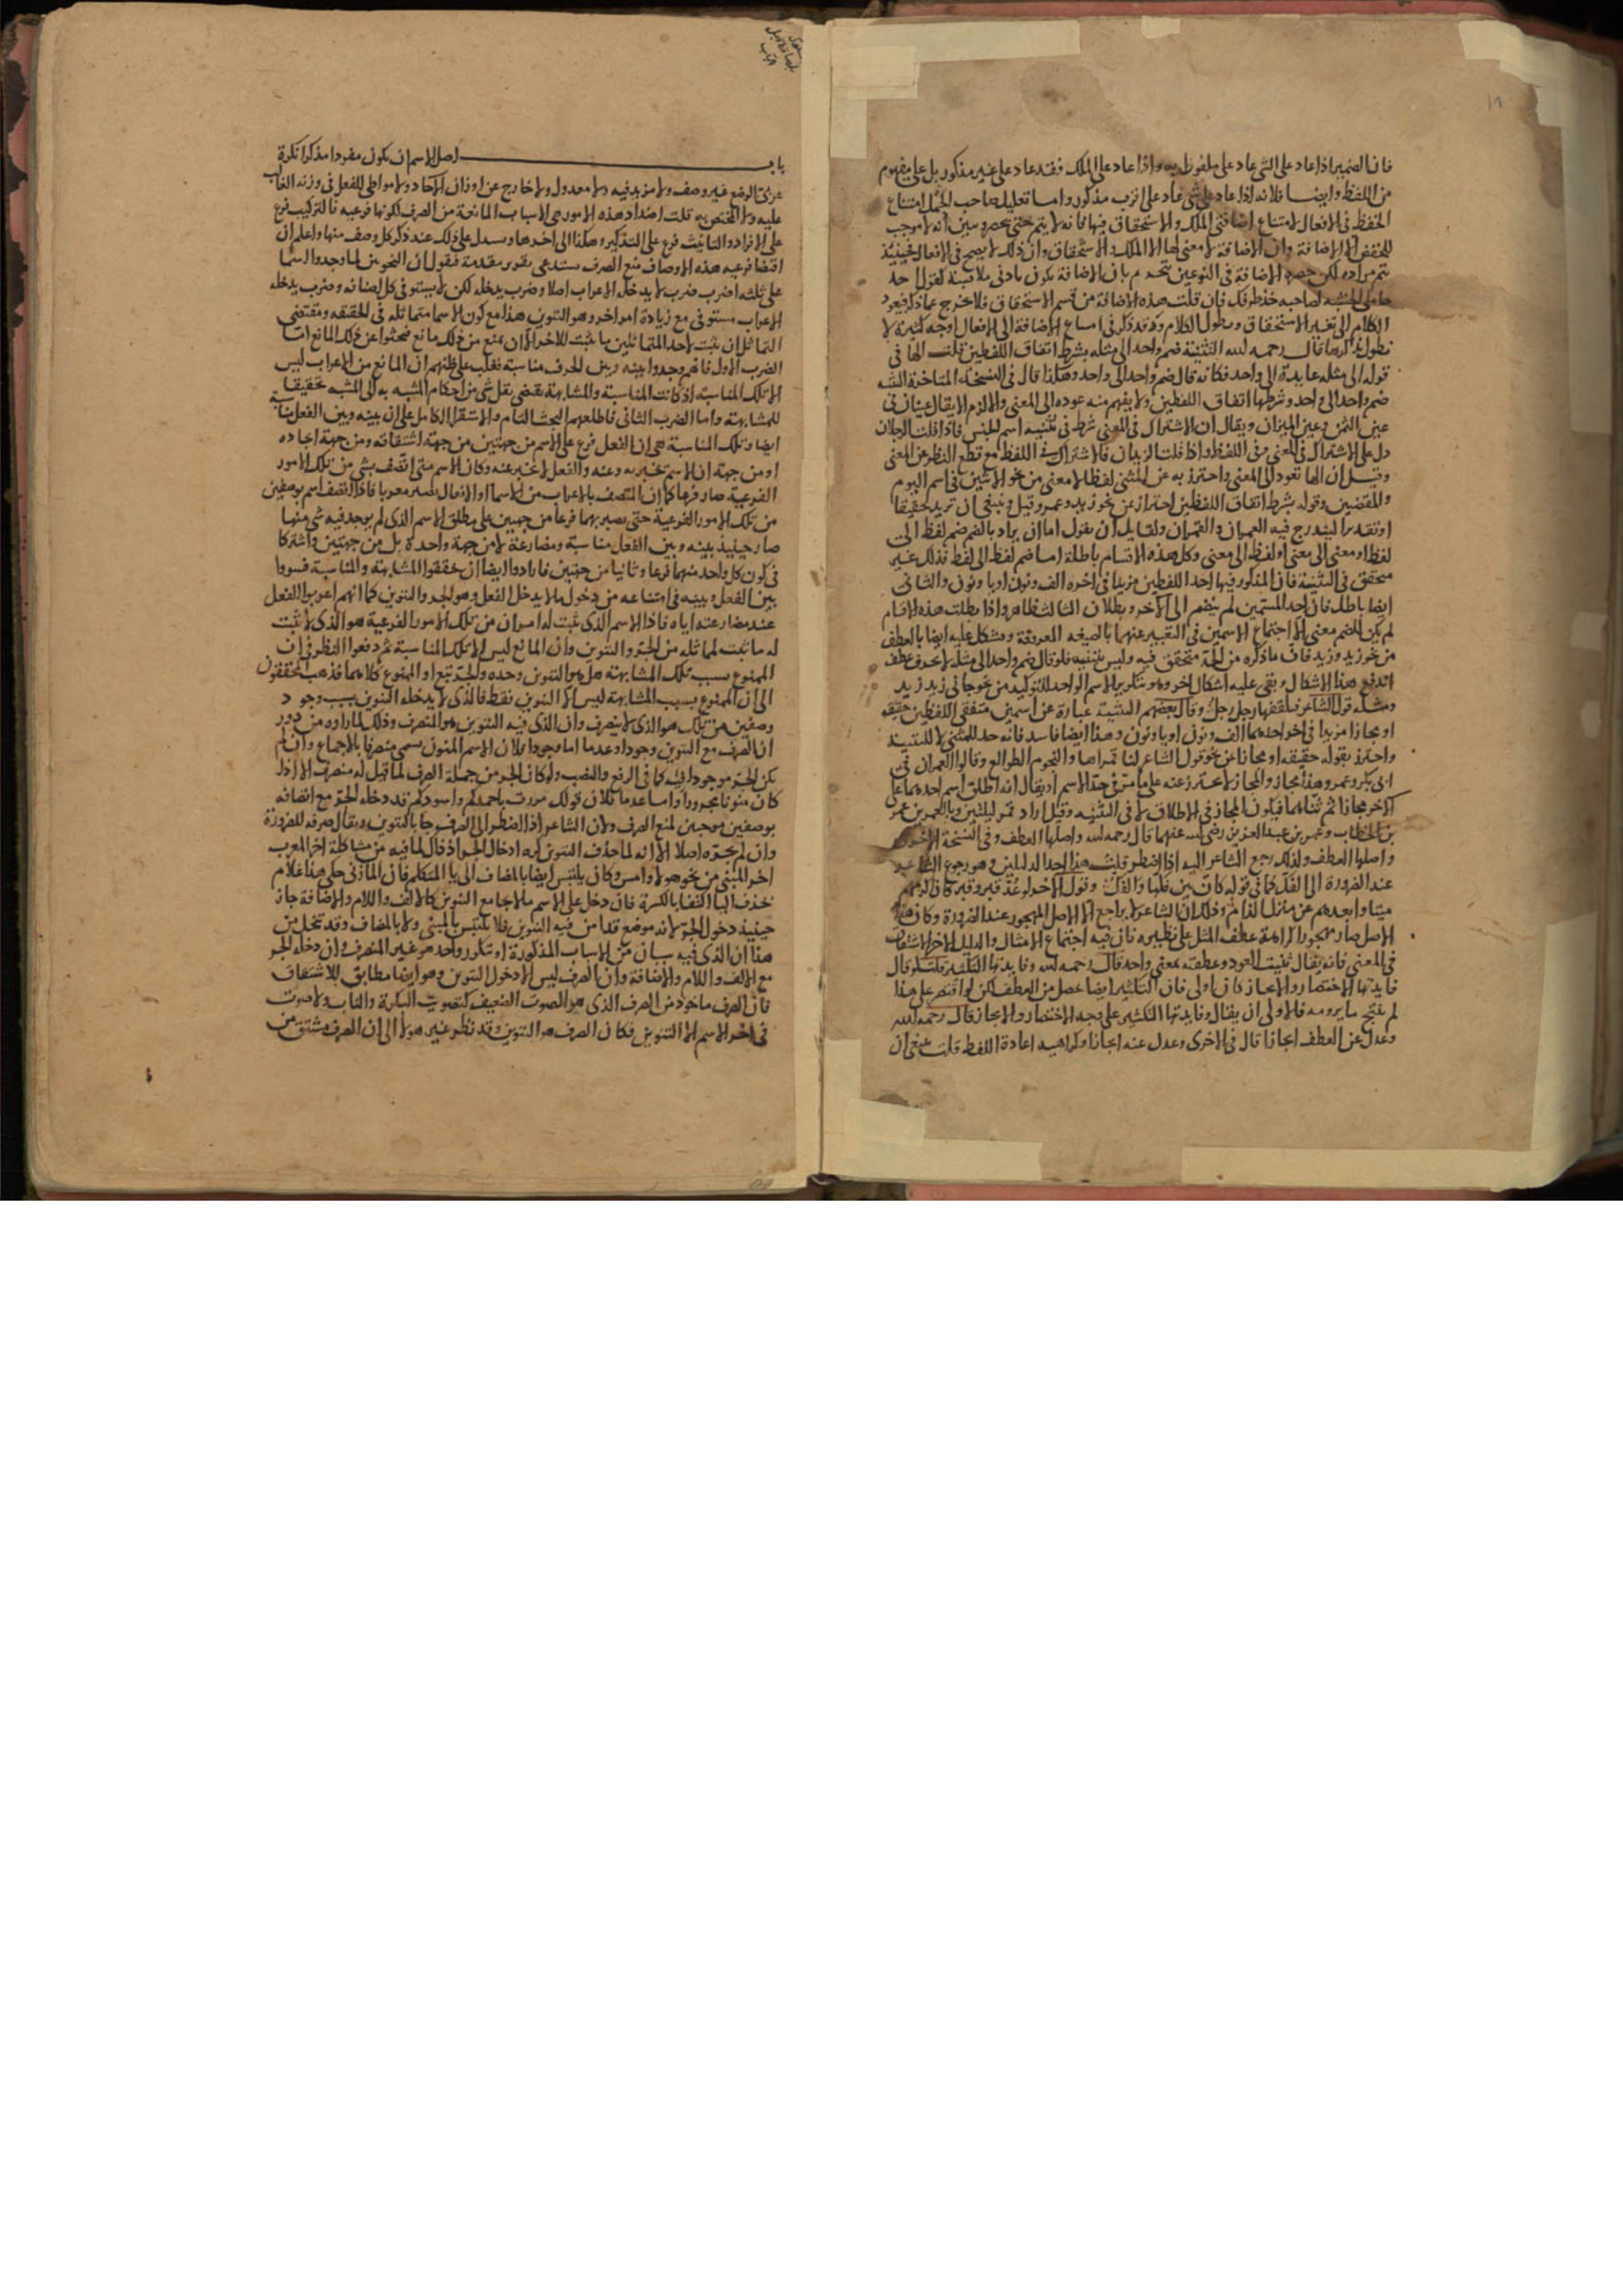 فان الضمير اذا عاد على الشي عاد على ملفوظ به واذا عاد على الملك فقد عاد على غير مذكور بل على مفهوم
من اللفظ وايضا فلانه اذا عاد على شي عاد على اقرب مذكور واما تعليل صاحب الجمل امتناع
الخفظ في الافعال لامتناع اضافتي الملك والاستحقاق فيها فانه لا يتم حتى يحصر وسين انه لا موجب
للخفض الا الاضافة وان الاضافة لا معنى لها الا الملك والاستحقاق وان ذلك لا يصح في الافعال فحينيذ
يتم مراده لكن حصر الاضافة في النوعين تحكم بان الاضافة تكون بادنى ملابسة كقول احد
حاملي الخشبة لصاحبه خذ طرفك فان قلت هذه الاضافة من قسم الاستحقاق فلا خروج عما ذكر فيعود
الكلام الى تفسير الاستحقاق ويطول الكلام وقد ذكر في امتناع الاضافة الى الافعال اوجه كثيرة لا
نطول بذكرها قال رحمه الله التثنية ضم واحد الى مثله بشرط اتفاق اللفظين قلت الها في
قوله الى مثله عايدة الى واحد فكانه قال ضم واحد الى واحد وهكذا قال في النسخة المتاخرة التثنية
ضم واحد الى واحد وشرطها اتفاق اللفظين ولا يفهم منه عوده الى المعنى والا لزم الا يقال عينان في
عين الثمن وعين الميزان ويقال ان الاشتراك في المعنى شرط في تثنيه اسم الجنس فاذا قلت الرجلان
دل على الاشتراك في المعنى وفي اللفظ واذا قلت الزيدان فالاشتراك في اللفظ مع قطع النظر عن المعنى
وقيل ان الها تعود الى المعنى واحترز به عن المثنى لفظا لا معنى من نحو الاثنين في اسم اليوم
والمقصين وقوله بشرط اتفاق اللفظين احتراز عن نحو زيد وعمرو قيل وينبغي ان تزيد تحقيقا
او تقديرا ليندرج فيه العمران والقمران ولقايل ان يقول اما ان يراد بالضم ضم لفظ الى
لفظ او معنى الى معنى او لفظ الى معنى وكل هذه الاقسام باطلة اما ضم لفظ الى لفظ فذلك غير
متحقق في التثنية فان المذكور فيها احد اللفظين مزيدا في اخره الف ونون او يا ونون والثاني
ايضا باطل فان احد المسميين لم ينضم الى الاخر وبطلان الثالث ظاهر واذا بطلت هذه الاقسام
لم يكن للضم معنى الا اجتماع الاسمين في التعبير عنهما بالصيغه المعروفة ويشكل عليه ايضا بالعطف
من نحو زيد وزيد فان ماذكره من الحد متحقق فيه وليس بتثنيه فلو قال ضم واحد الى مثله لا بحرف عطف
اندفع هذا الاشكال وبقي عليه اشكال اخر وهو تكرير الاسم الواحد للتوكيد من نحو جاني زيد زيد
ومثله قول الشاعر فتلقفها رجل رجل وقال بعضهم التثنية عبارة عن اسمين متفقي اللفظين حقيقة
او مجازا مزيدا في اخر احدهما الف ونون او يا ونون وهذا ايضا فاسد فانه حد للمثنى لا للتثنية
واحترز بقوله حقيقه او مجازا عن نحو قول الشاعر لنا قمراها والنجوم الطوالع وقالوا العمران في
ابي بكر وعمر وهذا مجاز والمجاز لا يحترز عنه على ما مر في حد الاسم او يقال انه اطلق اسم احدهما على
الاخر مجازا ثم ثناهما فيكون المجاز في الاطلاق لا في التثنيه وقيل اراد قمر ليلتين وبالعمرين عمر
بن الخطاب وعمر بن عبد العزيز رضي الله عنهما قال رحمه الله واصلها العطف وفي النسخة الاخرى
واصلها العطف ولذلك رجع الشاعر اليه اذا اضطر قلت هذا احد الدليلين وهو رجوع الشاعر
عند الضرورة الى الفك كما في قوله كان بين فكها والفك وقول الاخر لو عد قبر وقبر كان اكرمهم
ميتا وابعدهم عن منزل الذام وذلك ان الشاعر لا يراجع الا الاصل المهجور عند الضرورة وكان هذا
الاصل صار مهجورا لكراهة عطف المثل على نظيره فان فيه اجتماع الامثال والدليل الاخر الاشتقاق
في المعنى فانه يقال ثنيت العود وعطفته بمعنى واحد قال رحمه الله وفايدتها التكثير قلت لو قال
فايدتها الاختصار والايجاز كان اولى فان التكثير ايضا حصل من العطف لكن لو اقتصر على هذا
لم ينتج ما يرومه فالاولى ان يقال وفايدتها التكثير على وجه الاختصار والايجاز قال رحمه الله
وعدل عن العطف ايجازا قال في الاخرى وعدل عنه ايجازا وكراهيه اعادة اللفظ قلت ينبغي ان
باب اصل الاسم ان يكون مفردا مذكرا نكرة
عربي الوضع غير وصف ولا مزيد فيه ولا معدول ولا خارج عن اوزان الاحاد ولا مواطي للفعل في وزنه الغالب
عليه ولا المختص به قلت اضداد هذه الامور هي الاسباب المانعة من الصرف لكونها فرعيه فالتركيب فرع
على الافراد والتانيث فرع على التذكير وهكذا الى اخرها وسندل على ذلك عند ذكر كل وصف منها واعلم ان
اقتضا فرعيه هذه الاوصاف منع الصرف يستدعي تقرير مقدمة فنقول ان النحويين لما وجدوا الاسما
على ثلثه اضرب ضرب لا يدخله الاعراب اصلا وضرب يدخله لكن لا يستوفى كل اصنافه وضرب يدخله
الاعراب مستوفى مع زيادة امر اخر وهو التنوين هذا مع كون الاسما متماثله في الحقيقه ومقتضى
التماثل ان يثبت لاحد المتماثلين ما يثبت للاخر الا ان يمنع من ذلك مانع فبحثوا عن ذلك المانع اما
الضرب الاول فانهم وجدوا بينه وبين الحرف مناسبة فغلب على ظنهم ان المانع من الاعراب ليس
الا تلك المناسبة اذ كانت المناسبة والمشابهة تقتضي نقل شي من احكام المشبه به الى المشبه تحقيقا
للمشابهة واما الضرب الثاني فاطلعهم البحث التام والاستقرا الكامل على ان بينه وبين الفعل مناسبة
ايضا وتلك المناسبة هي ان الفعل فرع على الاسم من جهتين من جهة اشتقاقه ومن جهة ايجاده
او من جهة ان الاسم تخبر به وعنه والفعل لا تخبر عنه وكان الاسم متى اتصف بشي من تلك الامور
الفرعية صار فرعا كما ان المتصف بالاعراب من الاسما او الافعال يصير معربا فاذا اتصف اسم بوصفين
من تلك الامور الفرعية حتى يصير بهما فرعا من جهتين على مطلق الاسم الذي لم يوجد فيه شي منها
صار حينيذ بينه وبين الفعل مناسبة ومضارعة لا من جهة واحدة بل من جهتين واشتركا
في كون كل واحد منهما فرعا وثانيا من جهتين فارادوا ايضا ان يحققوا المشابهة والمناسبة فسووا
بين الفعل وبينه في امتناعه من دخول ما لا يدخل الفعل وهو الجر والتنوين كما انهم اعربوا الفعل
عند مضارعته اياه فاذا الاسم الذي ثبت له امران من تلك الامور الفرعية هو الذي لا يثبت
له ما ثبت لمماثله من الجر والتنوين وان المانع ليس الا تلك المناسبة ثم دفعوا النظر في ان
الممنوع بسبب تلك المشابهة هل هو التنوين وحده والجر تبع او الممنوع كلاهما فذهب المحققون
الى ان الممنوع بسبب المشابهة ليس الا التنوين فقط فالذي لا يدخله التنوين بسبب وجود
وصفين من تلك هو الذي لا ينصرف وان الذي فيه التنوين هو المنصرف وذلك لما راوه من دور
ان الصرف مع التنوين وجودا وعدما اما وجودا فلان الاسم المنون يسمى منصرفا بالاجماع وان لم
يكن الجر موجودا فيه كما في الرفع والنصب ولو كان الجر من جملة الصرف لما قيل له منصرف الا اذا
كان منونا مجرورا واما عدما فلان قولك مررت باحمدكم واسودكم قد دخله الجر مع اتصافه
بوصفين موجبين لمنع الصرف ولان الشاعر اذا اضطر الى الصرف جا بالتنوين ويقال صرفه للضرورة
وان لم يجره اصلا الا انه لما حذف التنوين كره ادخال الجر اذ قال لما فيه من مشاكلة اخر المعرب
اخر المبني من نحو هولا وامس وكان يلتبس ايضا بالمضاف الى يا المتكلم فان المازني حكى هذا غلام
بحذف اليا اكتفا بالكسرة فان دخل على الاسم ما لا يجامع التنوين كالالف واللام والاضافة جاز
حينيذ دخول الجر لانه موضع قد امن فيه التنوين فلا يلتبس بالمبني ولا بالمضاف وقد تنخل من
هذا ان الذي فيه سببان من الاسباب المذكورة او تكرر واحد هو غير المنصرف وان دخله الجر
مع الالف واللام والاضافة وان الصرف ليس الا دخول التنوين وهو ايضا مطابق للاشتقاق
فان الصرف ماخوذ من الصرف الذي هو الصوت الضعيف كتصويت البكرة والناب ولا صوت
في اخر الاسم الا التنوين فكان الصرف هو التنوين وقد نظر غير هولا الى ان الصرف مشتق من